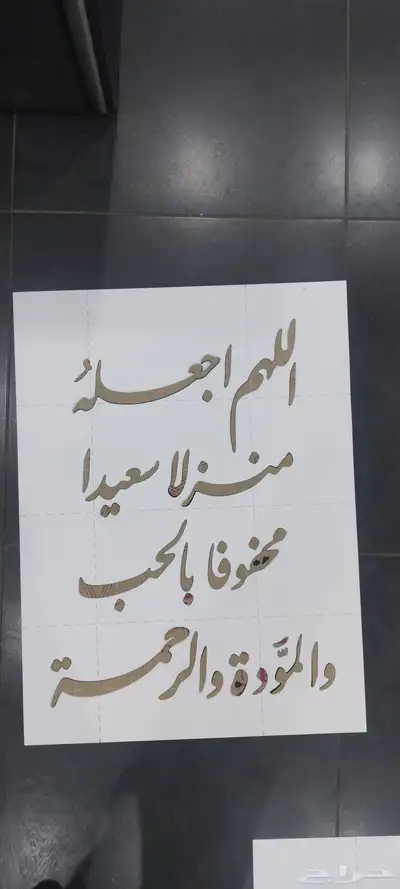 اللهم اجعلهُ
منزلا سعيدا
محفوفا بالحب
والموَّدة والرحمة
حراج